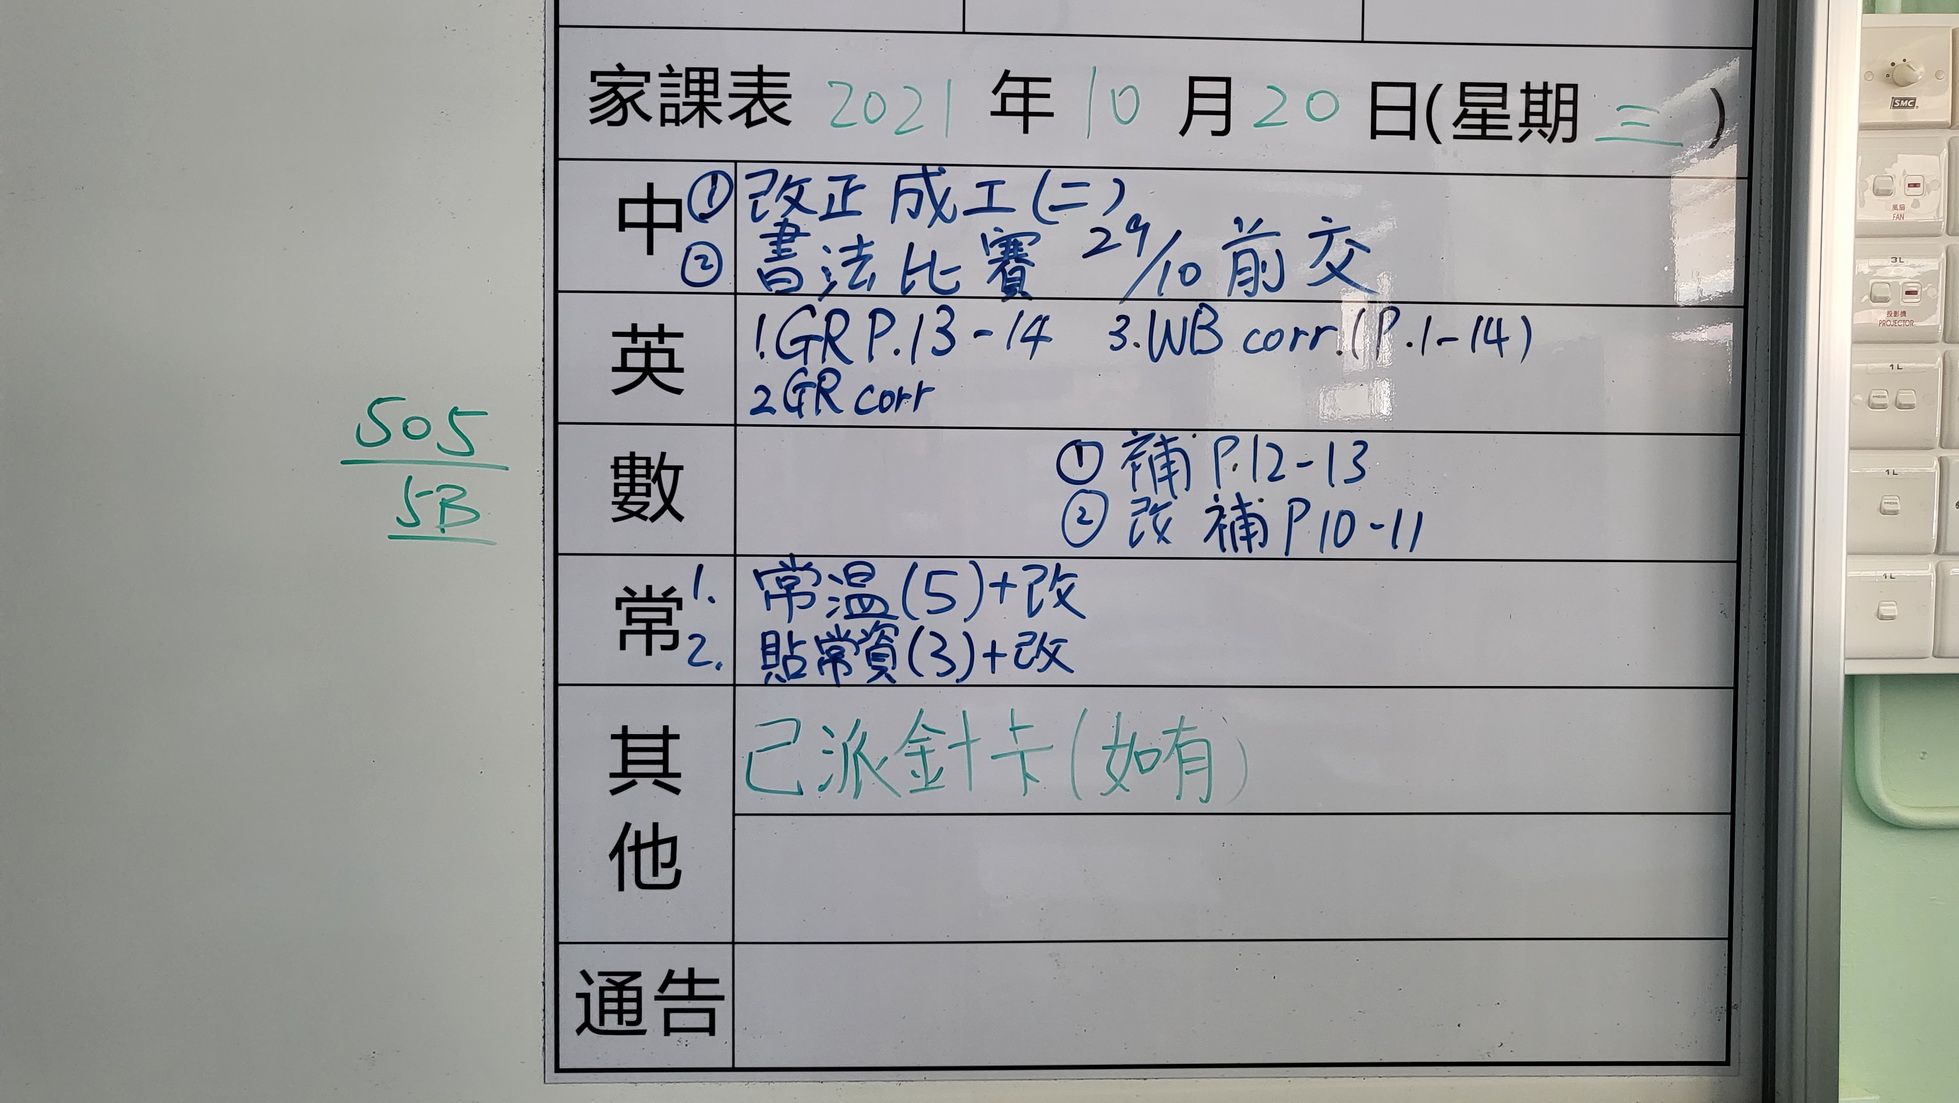 家課表 2021 年 10 月 20 日(星期 三 )
中 ① 改正 成工(二)
② 書法比賽 29/10 前交
英 1.GR P.13-14 3.WB corr.(P.1-14)
2 GR corr
數 ① 補 P.12-13
② 改 補 P10-11
常 1. 常温(5)+改
2. 貼常資(3)+改
其他 己派針卡(如有)
通告
505
5B
SMC
風扇
FAN
3L
投影機
PROJECTOR
1L
1L
1L